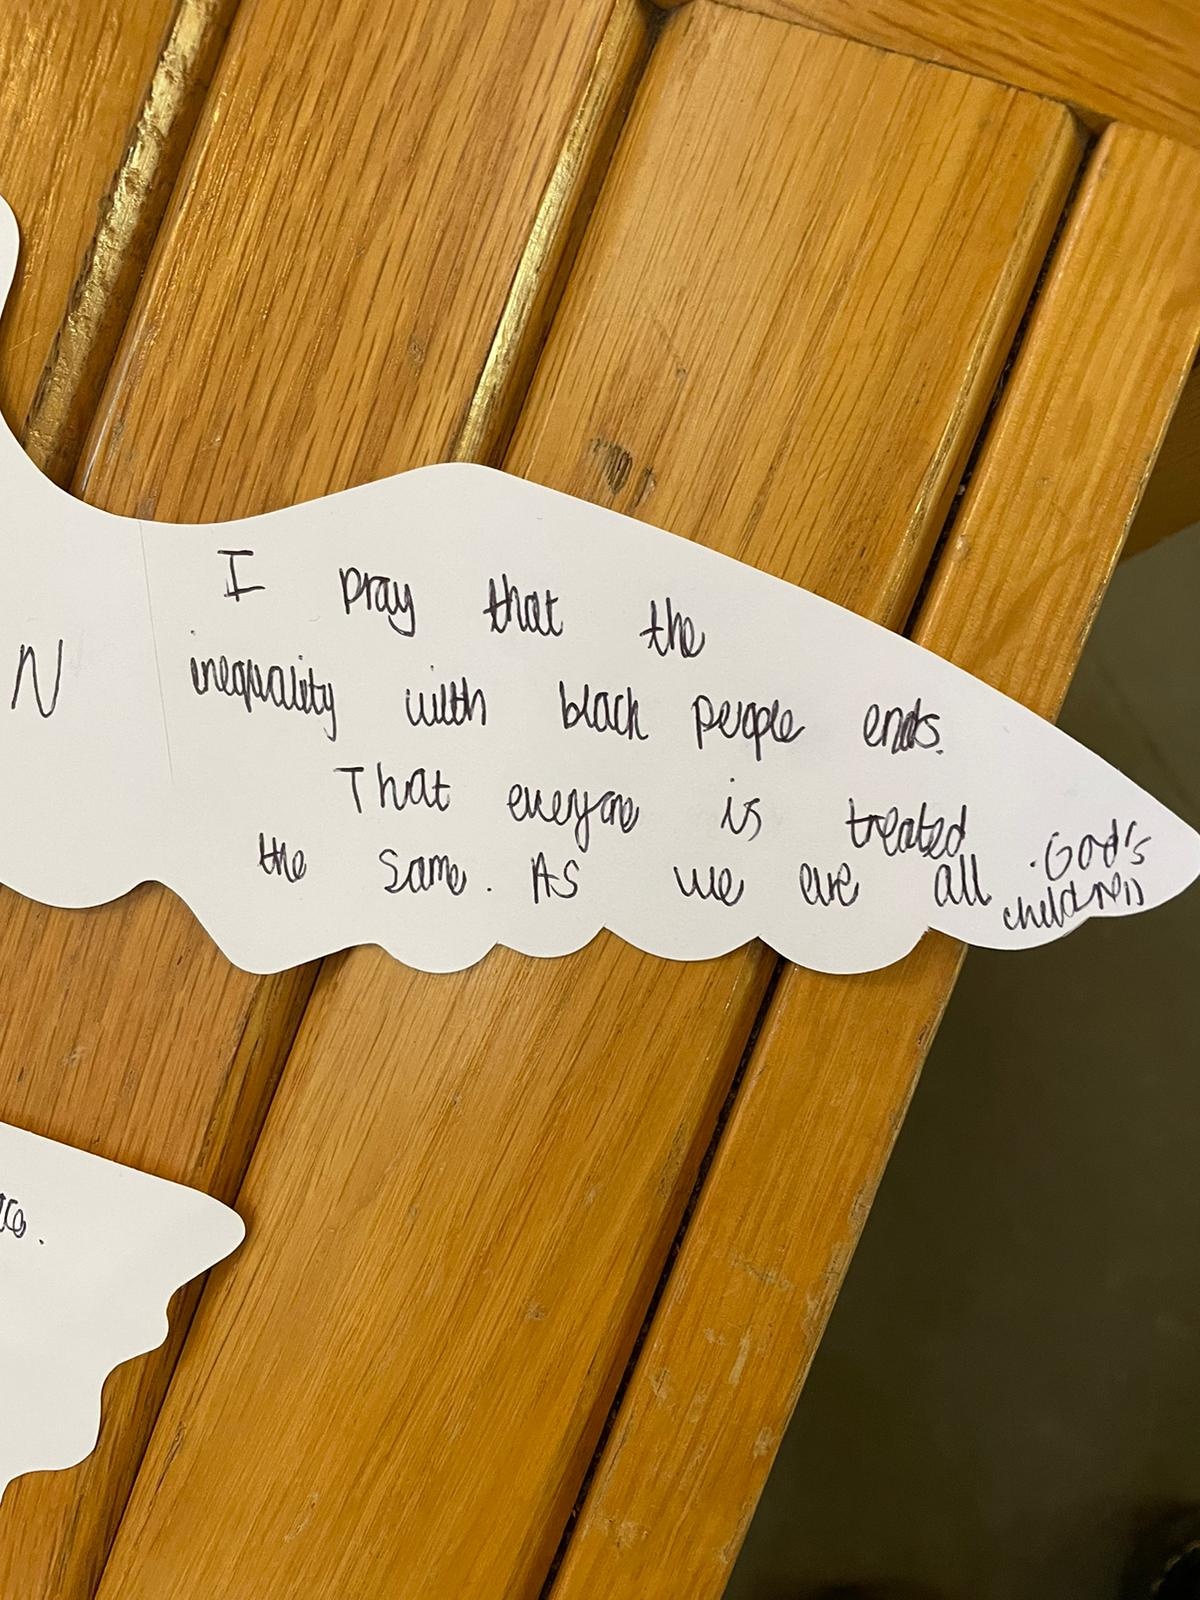 I pray that the
inequality with black people ends.
That everyone is treated
the same. As we are all God's
children
N